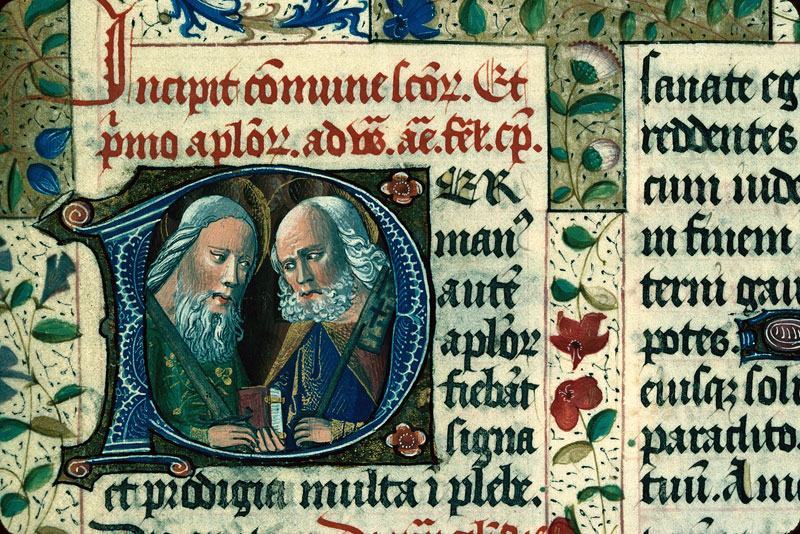 Incipit cōmune scōꝝ. Et
p̄mo aplōꝝ. ad vs̄. aē. fēk. cp̄.
PER
manꝰ
autē
aplōꝝ
fiebāt
signa
et prodigia multa ī plebe.
sanate eg
reddentes
cum iude
in finem
terni gau
potes.
eiusqꝫ soli
paraclito
tuū. Ame